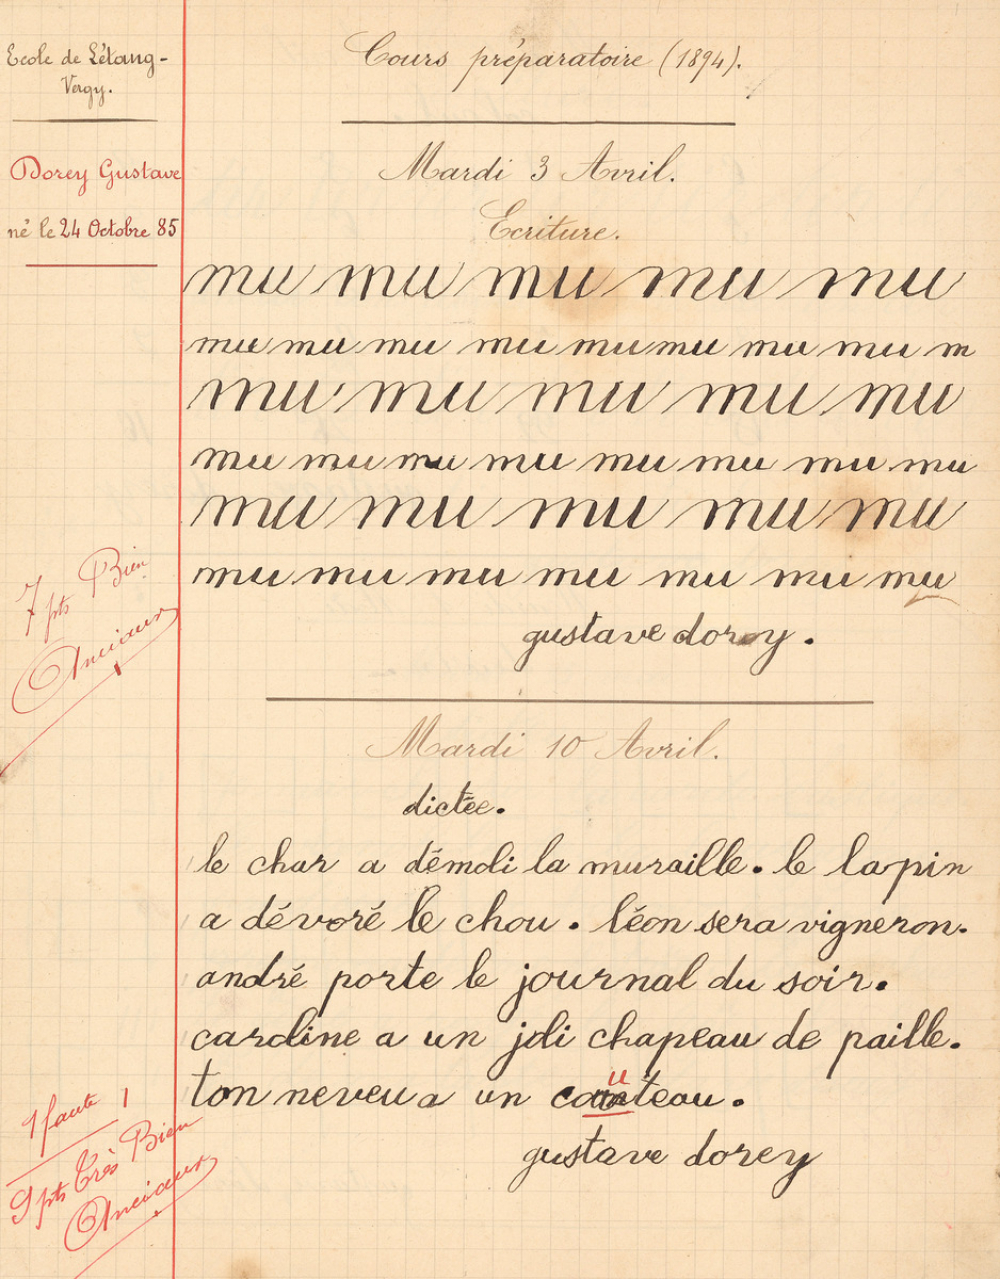 Ecole de L'étang-
Vergy.
Dorey Gustave
né le 24 Octobre 85
Cours préparatoire (1894).
Mardi 3 Avril.
Ecriture.
mu mu mu mu mu
mu mu mu mu mu mu mu mu m
mu mu mu mu mu
mu mu mu mu mu mu mu mu
mu mu mu mu mu
mu mu mu mu mu mu mu
7 pts Bien
Anciaux
gustave dorey.
Mardi 10 Avril.
dictée.
le char a démoli la muraille. le lapin
a dévoré le chou. léon sera vigneron.
andré porte le journal du soir.
caroline a un joli chapeau de paille.
u
ton neveu a un couteau.
gustave dorey
1 faute 1
9 pts Très Bien
Anciaux